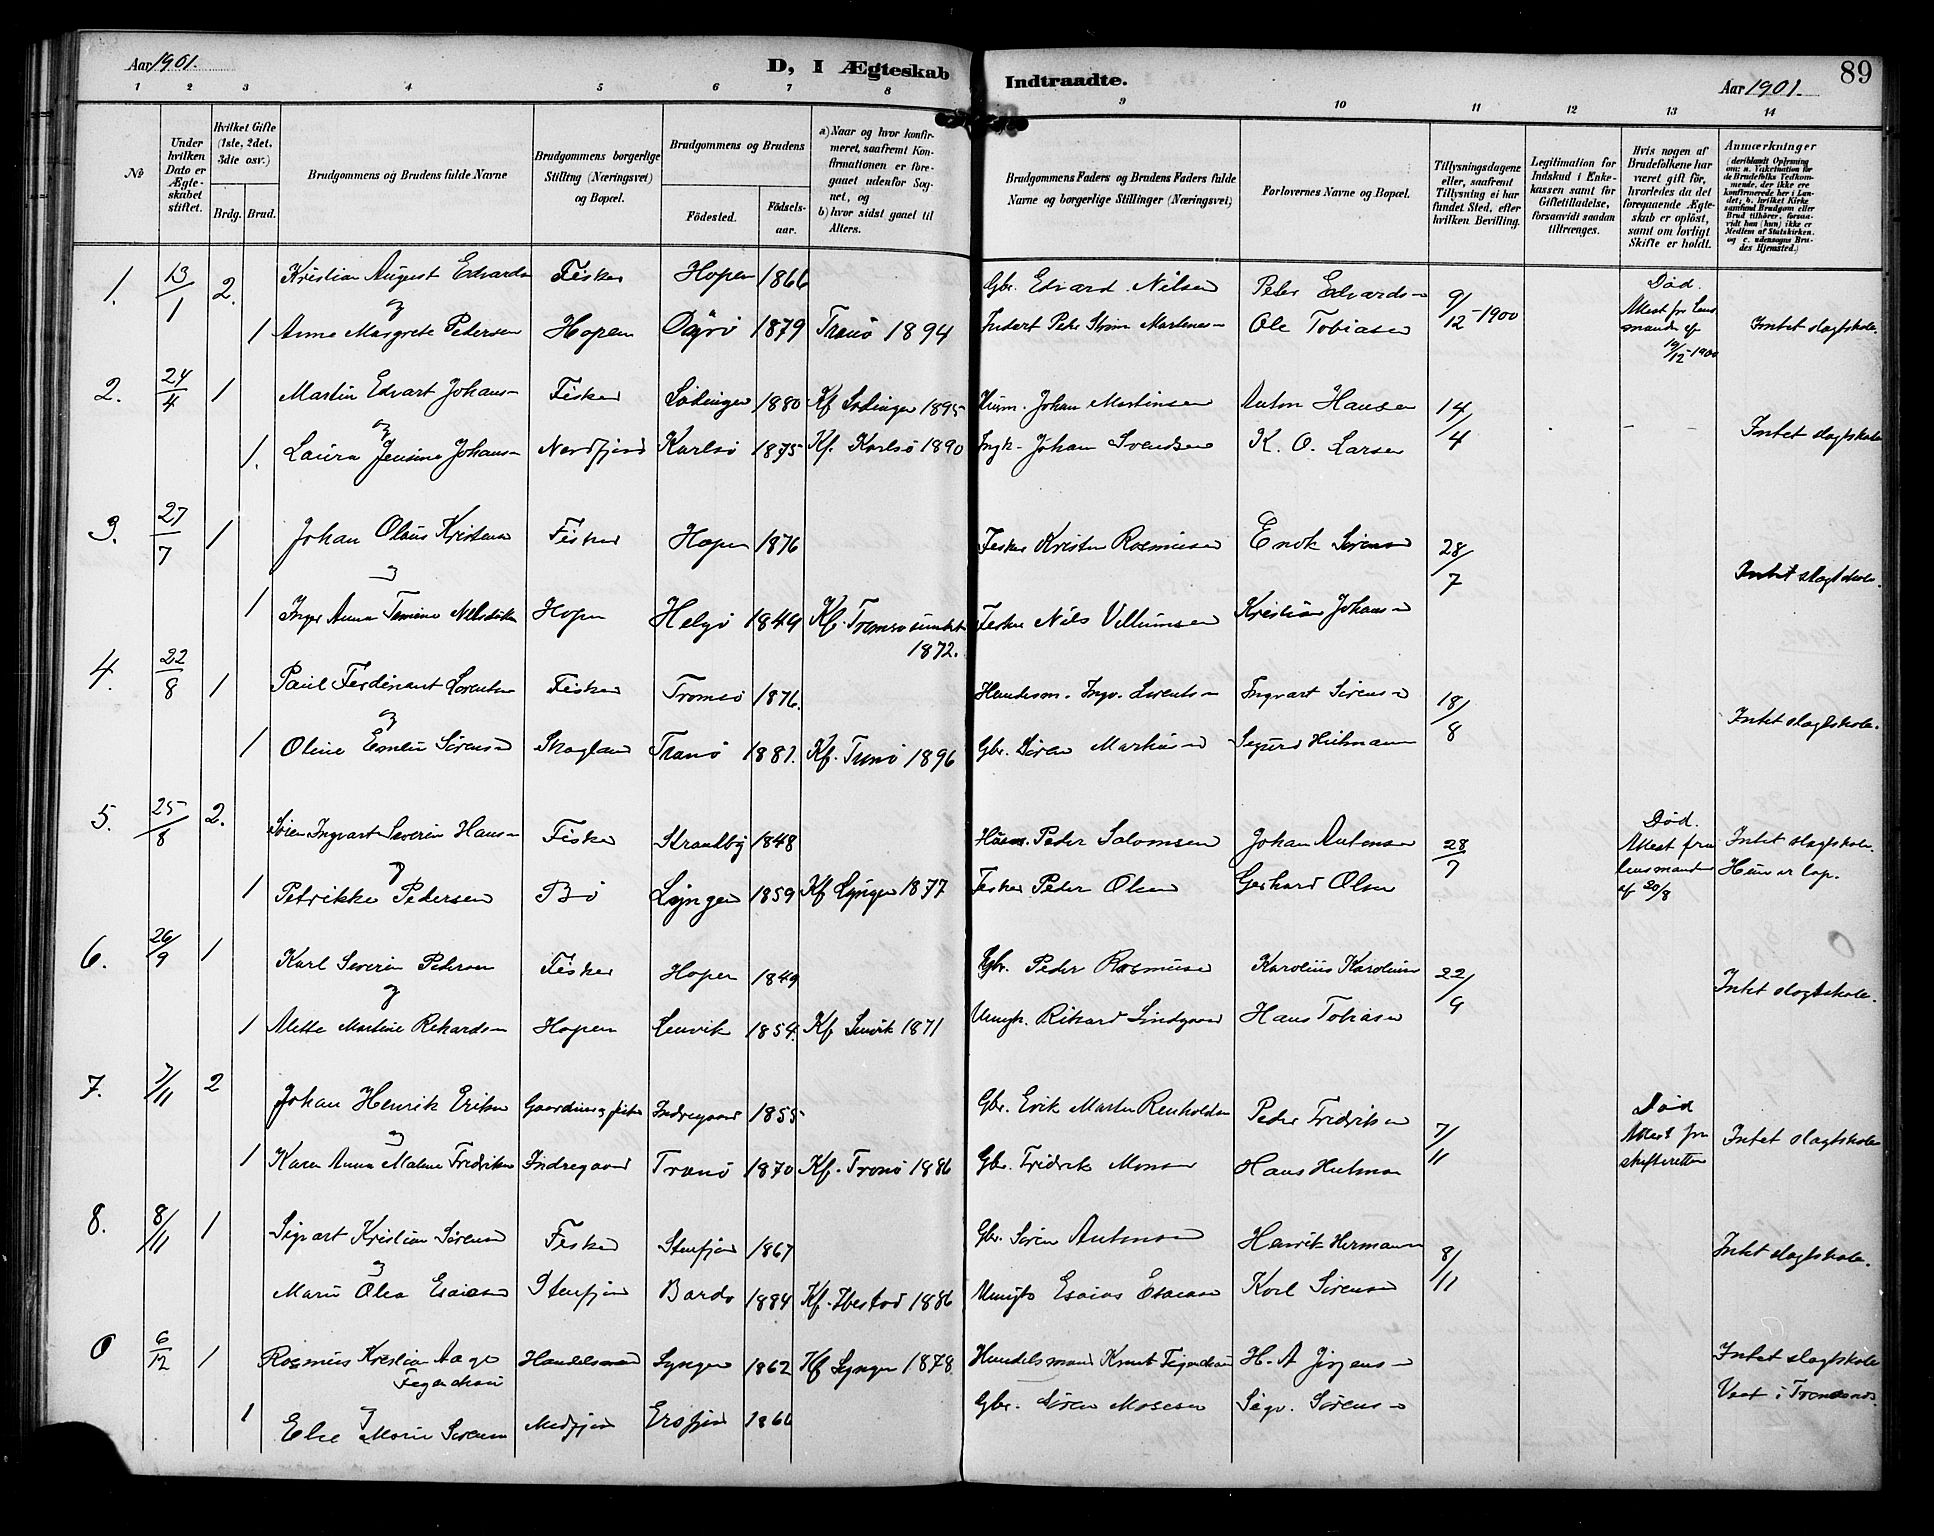 Aar 1901.
D, I Ægteskab Indtraadte.
Aar 1901. 89
1 2 3 4 5 6 7 8 9 10 11 12 13 14
No
Under hvilken Dato er Ægteskabet stiftet.
Hvilket Gifte (1ste, 2det, 3die osv.)
Brdg. Brud.
Brudgommens og Brudens fulde Navne
Brudgommens borgerlige Stilling (Næringsvei) og Bopæl.
Brudgommens og Brudens
Födested. Födselsaar.
a) Naar og hvor konfirmeret, saafremt Konfirmationen er foregaaet udenfor Sognet, og
b) hvor sidst gaaet til Alters.
Brudgommens Faders og Brudens Faders fulde Navne og borgerlige Stillinger (Næringsvei)
Forlovernes Navne og Bopæl.
Tillysningsdagene eller, saafremt Tillysning ei har fundet Sted, efter hvilken Bevilling.
Legitimation for Indskud i Enkekassen samt for Giftetilladelse, forsaavidt saadan tiltrænges.
Hvis nogen af Brudefolkene har været gift för, hvorledes da det foregaaende Ægteskab er oplöst, samt om lovligt Skifte er holdt.
Anmærkninger (deriblandt Oplysning om: a. Vakcination for de Brudefolks Vedkommende, der ikke ere konfirmerede her i Landet; b. hvilket Kirkesamfund Brudgom eller Brud tilhörer, forsaavidt han (hun) ikke er Medlem af Statskirken, og c. udensogns Brudes Hjemsted.)
1. 13/1 2. Kristian August Edvards Fisker Hopen 1866 Gbr. Edvard Nilsen Peder Edvards 9/12-1900 Død. Attest fr Lensmanden af 19/12-1900
og
1 Anna Margrete Pedersen Hopen 1879 Tranö 1894 Ole Tobiasen Intet slagtskab.
2. 24/4 1 Martin Edvart Johans Fisker Lödingen 1880 Kf Lödingen 1895 Husm. Johan Martinsen Anton Hansen 14/4 - -
og
1. Laura Jensine Johans Nordfjord Karlsö 1875 Kf. Karlsö 1890 Johan Svendsen K. O. Larsen Intet slagtskab
3. 27/7 1 Johan Olaus Kristens Fisker Hopen 1876 Fisker Kristen Rasmusen Enok Sørensen 28/7
og
1 Inger Anna Hopen Helgö 1849 Kf. Tromsösundet 1872. Fisker Nils Villumsen Kristian Johans Intet slagtskab.
4. 22/8 1 Paul Ferdinant Lorents Fisker Tromsö 1876. Handesm. Ingv. Lorents Ingvart Sørens 18/8
og
1 Oline Emelie Sørens Skogland Tranö 1881. Kf. Tranö 1896 Gbr. Søren Martins Sigurd Heitmann Intet slagtskab.
5. 25/8 2. Søren Ingvart Severin Hans Fisker Strandby 1848 Husm. Peder Salomsen Johan Antonsen 28/7 Død. Attest fra lensmanden af 20/8 Intet slagtskab.
og
1 Petrikke Pedersen Bö Lyngen 1859 Kf Lyngen 1877 Fisker Peder Olsen Gerhard Olsen Hun er lap.
6. 26/9 1 Karl Severin Pedersen Fisker Hopen 1849 Gbr. Peder Rasmusen Karolius Karoliusen 22/9
og
1 Mette Martine Rikards Hopen Lenvik 1854. Kf Lenvik 1871 Rikard Lindgaard Hans Tobiasen Intet slagtskab.
7. 7/11 2 Johan Henrik Eriksen Indregaard 1855 Gbr. Erik Martin Renholds Peder Fridriksen 7/11 Død Attest fra skifteretten
og
1 Karen Anna Malene Fredriks Indregaard Tranö 1870 Kf. Tranö 1886 Gbr. Fridrik Mons Hans Heitman Intet slagtskab
8. 8/11 1 Sigvart Kristian Sørensen Fisker Stenfjord 1867 Gbr. Søren Antonsen Henrik Hermann 8/11
og
Marie Olea Esaiasen Stenfjord Bardo 1884 Kf. Ibestad 1886 Esaias Esaiasen Karl Sørensen Intet slagtskab.
6/12 1 Rasmus Kristian Aage Figenschau Handelsmand Lyngen 1862 Kf Lyngen 1878 Handelsmand Knut Figenschau H. A Jørgens Intet slagtskab
og
1 Else Marie Sørensen Medfjord Ersfjord 1866 Gbr. Søren Mosesen Sigv. Sørens